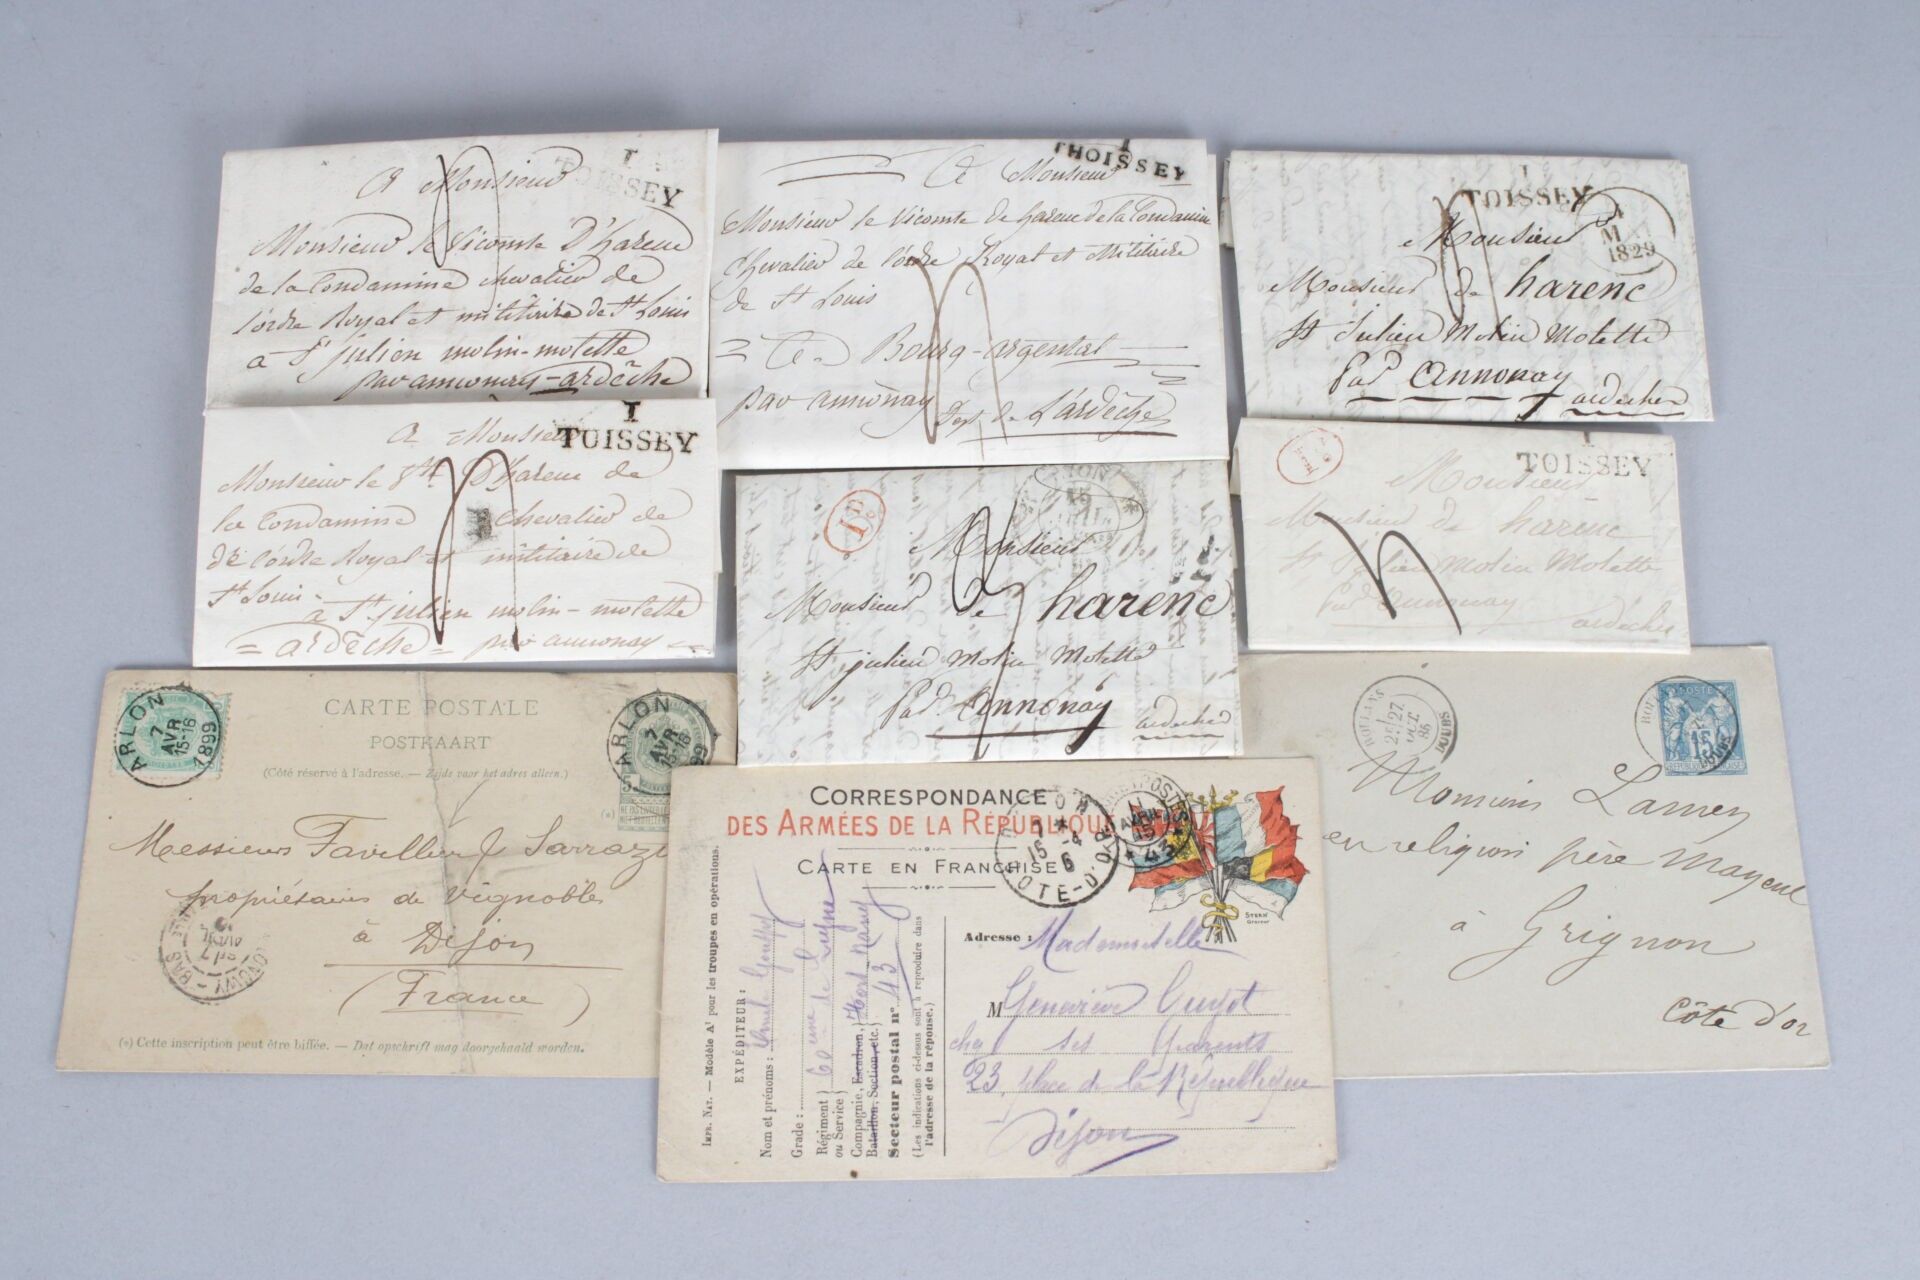 1
TOISSEY
A Monsieur
Monsieur le Vicomte D'harenc
de la Condamine chevalier de
l'ordre Royal et militaire de St Louis
a St julien molin-molette
par annonay-ardêche
1
THOISSEY
A Monsieur
Monsieur le Vicomte de harenc de la Condamine
Chevalier de l'ordre Royal et Militaire
de St Louis
= A Bourg-argental
par annonay Dep. de L'ardêche
1
TOISSEY
1829
Monsieur
Monsieur de harenc
St Julien Molin Molette
Par annonay
ardeche
1
TOISSEY
A Monsieur
Monsieur le D'harenc de
la Condamine chevalier de
de l'ordre Royal et militaire de
St Louis
a St julien molin-molette
= ardêche = par annonay
1D
Monsieur
Monsieur de harenc
St julien Molin Molette
Par annonay
ardeche
TOISSEY
Monsieur
Monsieur de harenc
St Julien Molin Molette
Par annonay
ardeche
ARLON
7
AVR
15-16
1899
CARTE POSTALE
POSTKAART
(Côté réservé à l'adresse. — Zijde voor het adres alleen.)
ARLON
7
AVR
15-16
99
5
(*)
Messieurs Favellier & Sarraz
propriétaires de Vignobles
à Dijon
(France)
(*) Cette inscription peut être biffée. — Dat opschrift mag doorgehaald worden.
CORRESPONDANCE
DES ARMÉES DE LA RÉPUBLIQUE
CARTE EN FRANCHISE
CÔTE-D'OR
STERN
Graveur
IMPR. NAT. — Modèle A¹ pour les troupes en opérations.
EXPÉDITEUR :
Nom et prénoms :
Grade :
Régiment
ou Service
60 me de ligne
Compagnie, Escadron,
Bataillon, Section, etc.
Hors rang
Secteur postal n° 43
(Les indications ci-dessus sont à reproduire dans
l'adresse de la réponse.)
Adresse : Mademoiselle
M Geneviève Guyot
chez ses parents
23, place de la République
Dijon
ROULANS
27
OCT
85
DOUBS
POSTE
15
RÉPUBLIQUE FRANÇAISE
Monsieur Lamey
en religion père Mayeul
à Grignon
Côte d'or